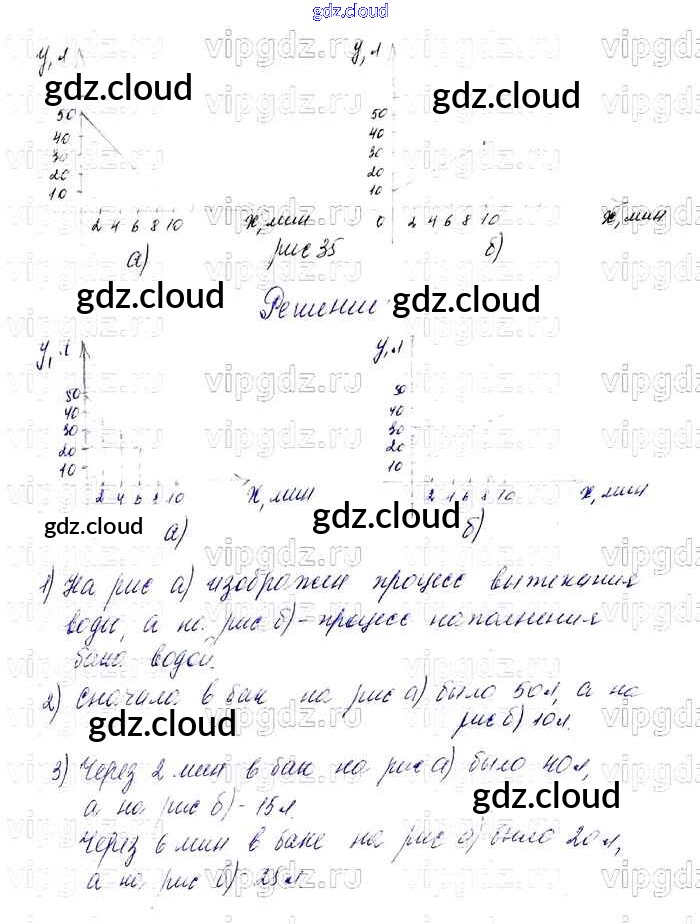 gdz.cloud
у, л у, л
gdz.cloud gdz.cloud
50 50
40 40
30 30
20 20
10 10
2 4 6 8 10 х, мин 0 2 4 6 8 10 х, мин
а) рис 35 б)
gdz.cloud Решение gdz.cloud
у, л у, л
50 50
40 40
30 30
20 20
10 10
2 4 6 8 10 х, мин 2 4 6 8 10 х, мин
gdz.cloud а) gdz.cloud б)
1) На рис а) изображен процесс вытекания
воды, а на рис б) - процесс наполнения
бака водой.
2) Сначала в бак на рис а) было 50 л, а на
gdz.cloud рис б) 10 л.
3) Через 2 мин в бак на рис а) было 40 л,
а на рис б) - 15 л. gdz.cloud
Через 6 мин в баке на рис а) было 20 л,
а на рис б) - 25 л.
vipgdz.ru